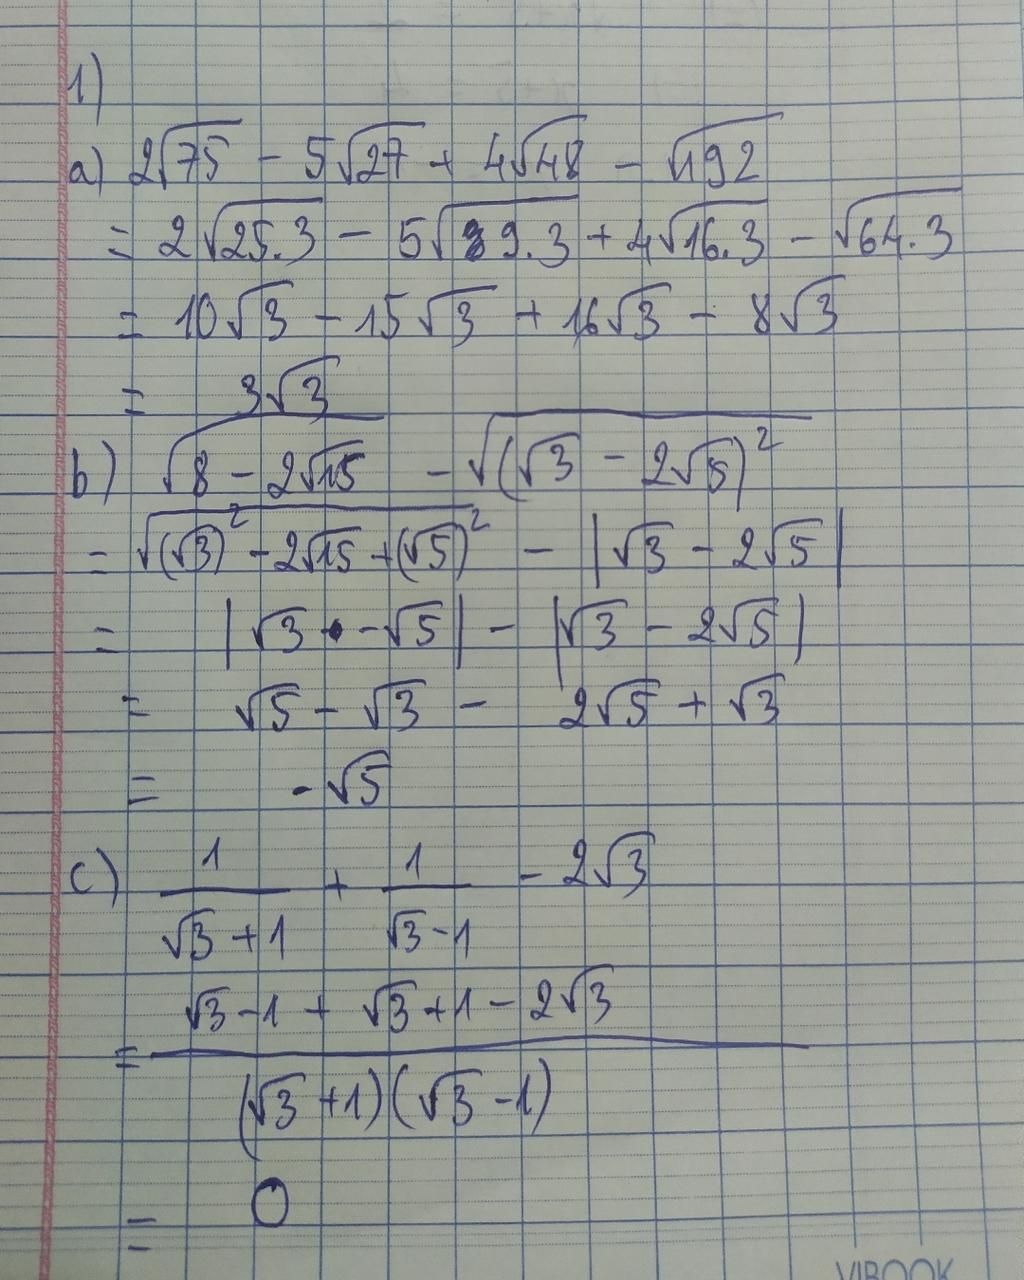 1)
a) 2√75 - 5√27 + 4√48 - √192
= 2√25.3 - 5√9.3 + 4√16.3 - √64.3
= 10√3 - 15√3 + 16√3 - 8√3
= 3√3
b) √(8 - 2√15) - √((√3 - 2√5)²)
= √((√3)² - 2√15 + (√5)²) - |√3 - 2√5|
= |√3 - √5| - |√3 - 2√5|
= √5 - √3 - 2√5 + √3
= -√5
c) 1/(√3 + 1) + 1/(√3 - 1) - 2√3
= (√3 - 1 + √3 + 1 - 2√3)/((√3 + 1)(√3 - 1))
= 0
VIBOOK